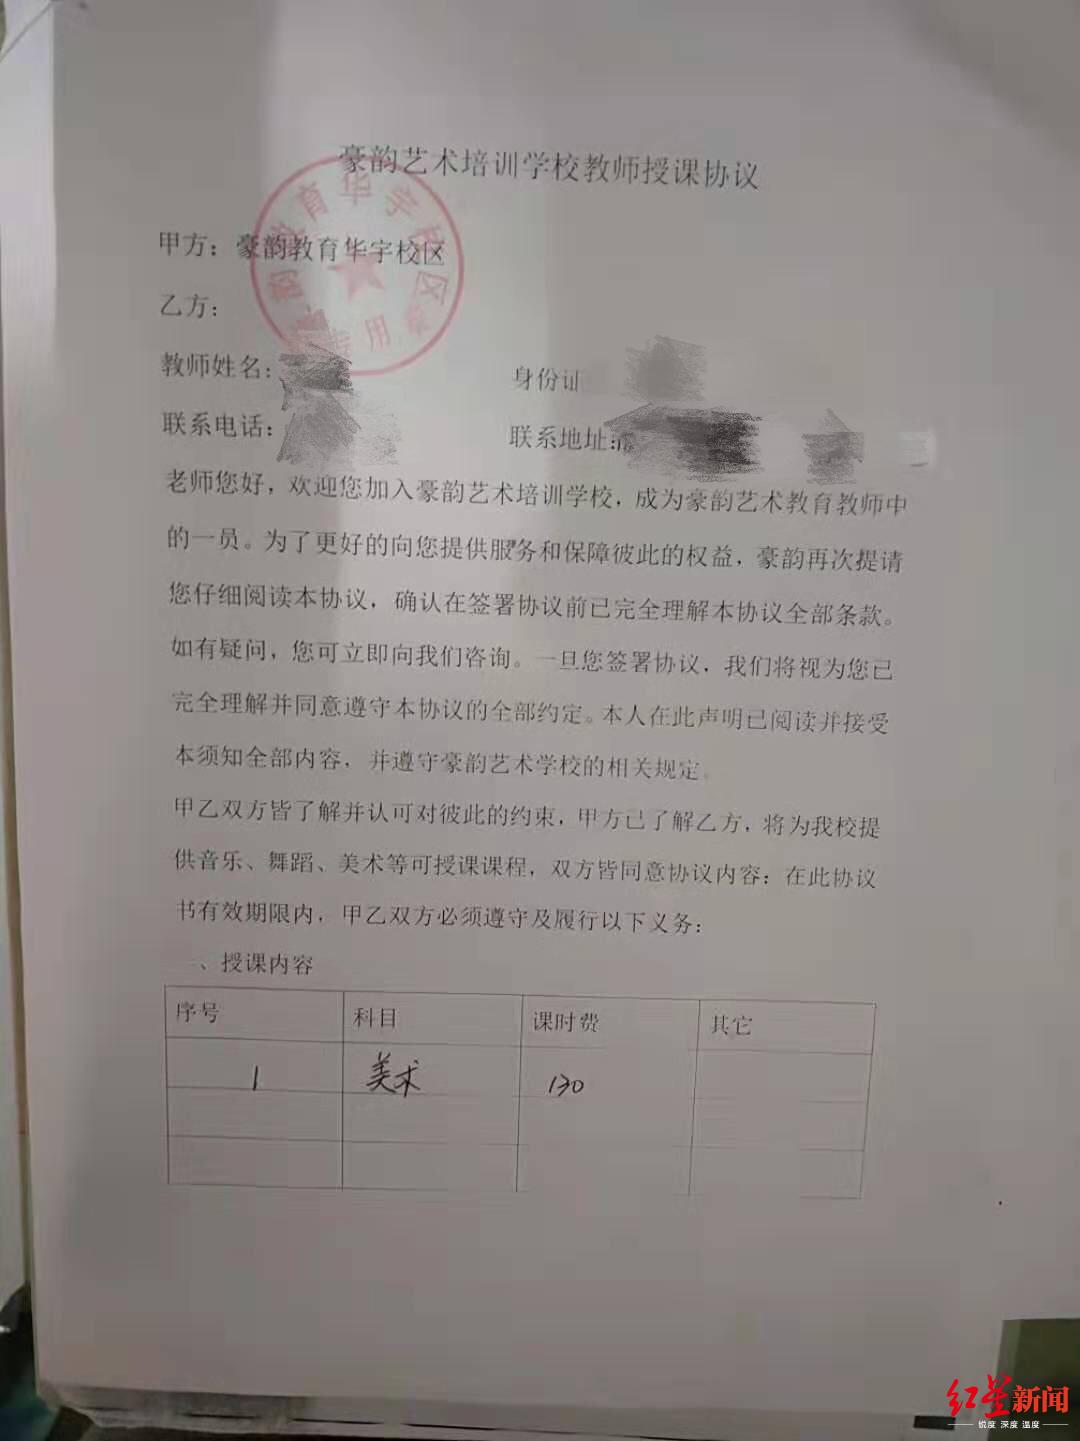 豪韵艺术培训学校教师授课协议
甲方：豪韵教育华宇校区
乙方：
教师姓名：
身份证
联系电话：
联系地址：
老师您好，欢迎您加入豪韵艺术培训学校，成为豪韵艺术教育教师中
的一员。为了更好的向您提供服务和保障彼此的权益，豪韵再次提请
您仔细阅读本协议，确认在签署协议前已完全理解本协议全部条款。
如有疑问，您可立即向我们咨询。一旦您签署协议，我们将视为您已
完全理解并同意遵守本协议的全部约定。本人在此声明已阅读并接受
本须知全部内容，并遵守豪韵艺术学校的相关规定。
甲乙双方皆了解并认可对彼此的约束，甲方已了解乙方，将为我校提
供音乐、舞蹈、美术等可授课课程，双方皆同意协议内容：在此协议
书有效期限内，甲乙双方必须遵守及履行以下义务：
一、授课内容
序号 科目 课时费 其它
1 美术 130
教育华宇校区
专用章
红星新闻
锐度 深度 温度